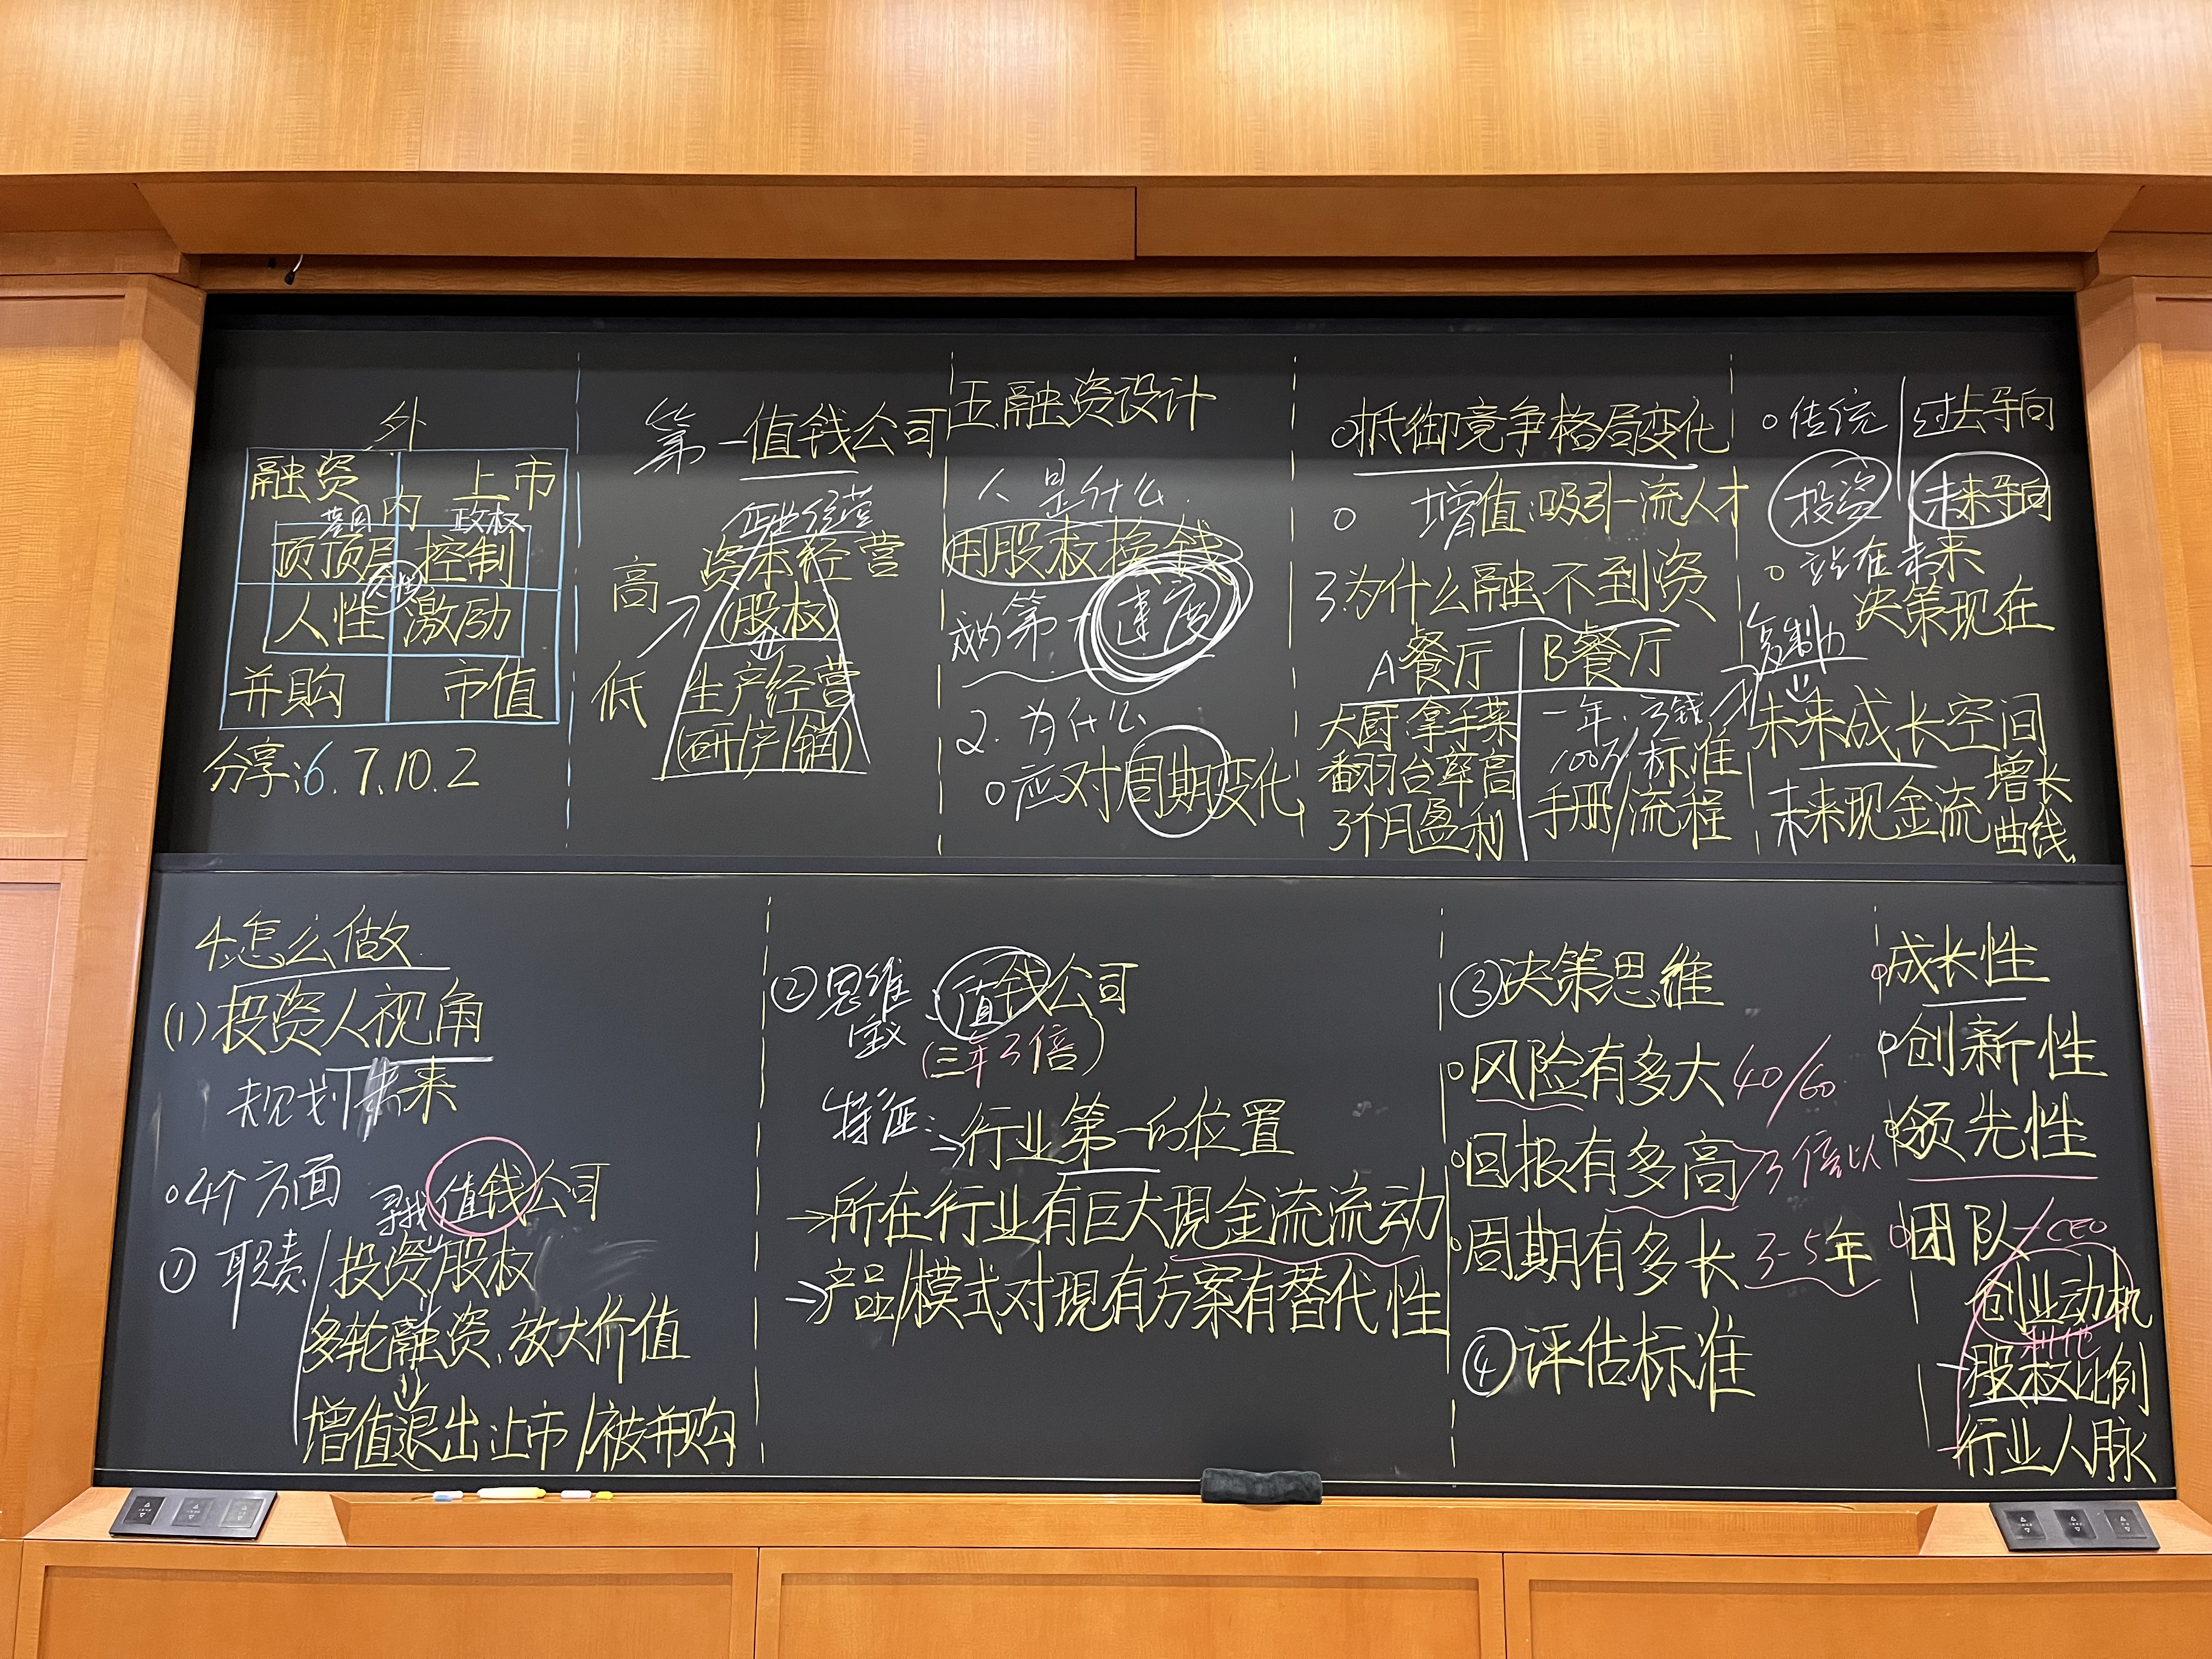 外
融资 上市
内
政权
顶顶层 控制
人性 激励
并购 市值
分享:6.7.10.2
第一值钱公司
资本经营
高 (股权)
低 生产经营
(研/产/销)
五.融资设计
1. 是什么
用股权换钱
成为第一 速度
2.为什么
○应对周期变化
○抵御竞争格局变化
○ 增值:吸引一流人才
3.为什么融不到资
A餐厅 B餐厅
大厨拿手菜
翻台率高
3个月盈利
一年:亏钱
100万/标准
手册/流程
○传统 过去导向
投资 未来导向
○站在未来
决策现在
复制力
未来成长空间
未来现金流 增长曲线
4.怎么做
(1)投资人视角
规划未来
○4个方面
寻找值钱公司
① 职责 投资股权
多轮融资、放大价值
增值退出:上市/被并购
②思维:值钱公司
(三年3倍)
特征:
→行业第一的位置
→所在行业有巨大现金流流动
→产品/模式对现有方案有替代性
③决策思维
○风险有多大 40/60
○回报有多高 3倍以
○周期有多长 3-5年
④评估标准
○成长性
○创新性
○领先性
○团队/CEO
创业动机
利他
股权比例
行业人脉